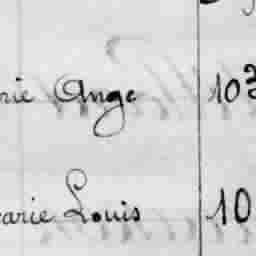 rie Ange 103
arie Louis 10